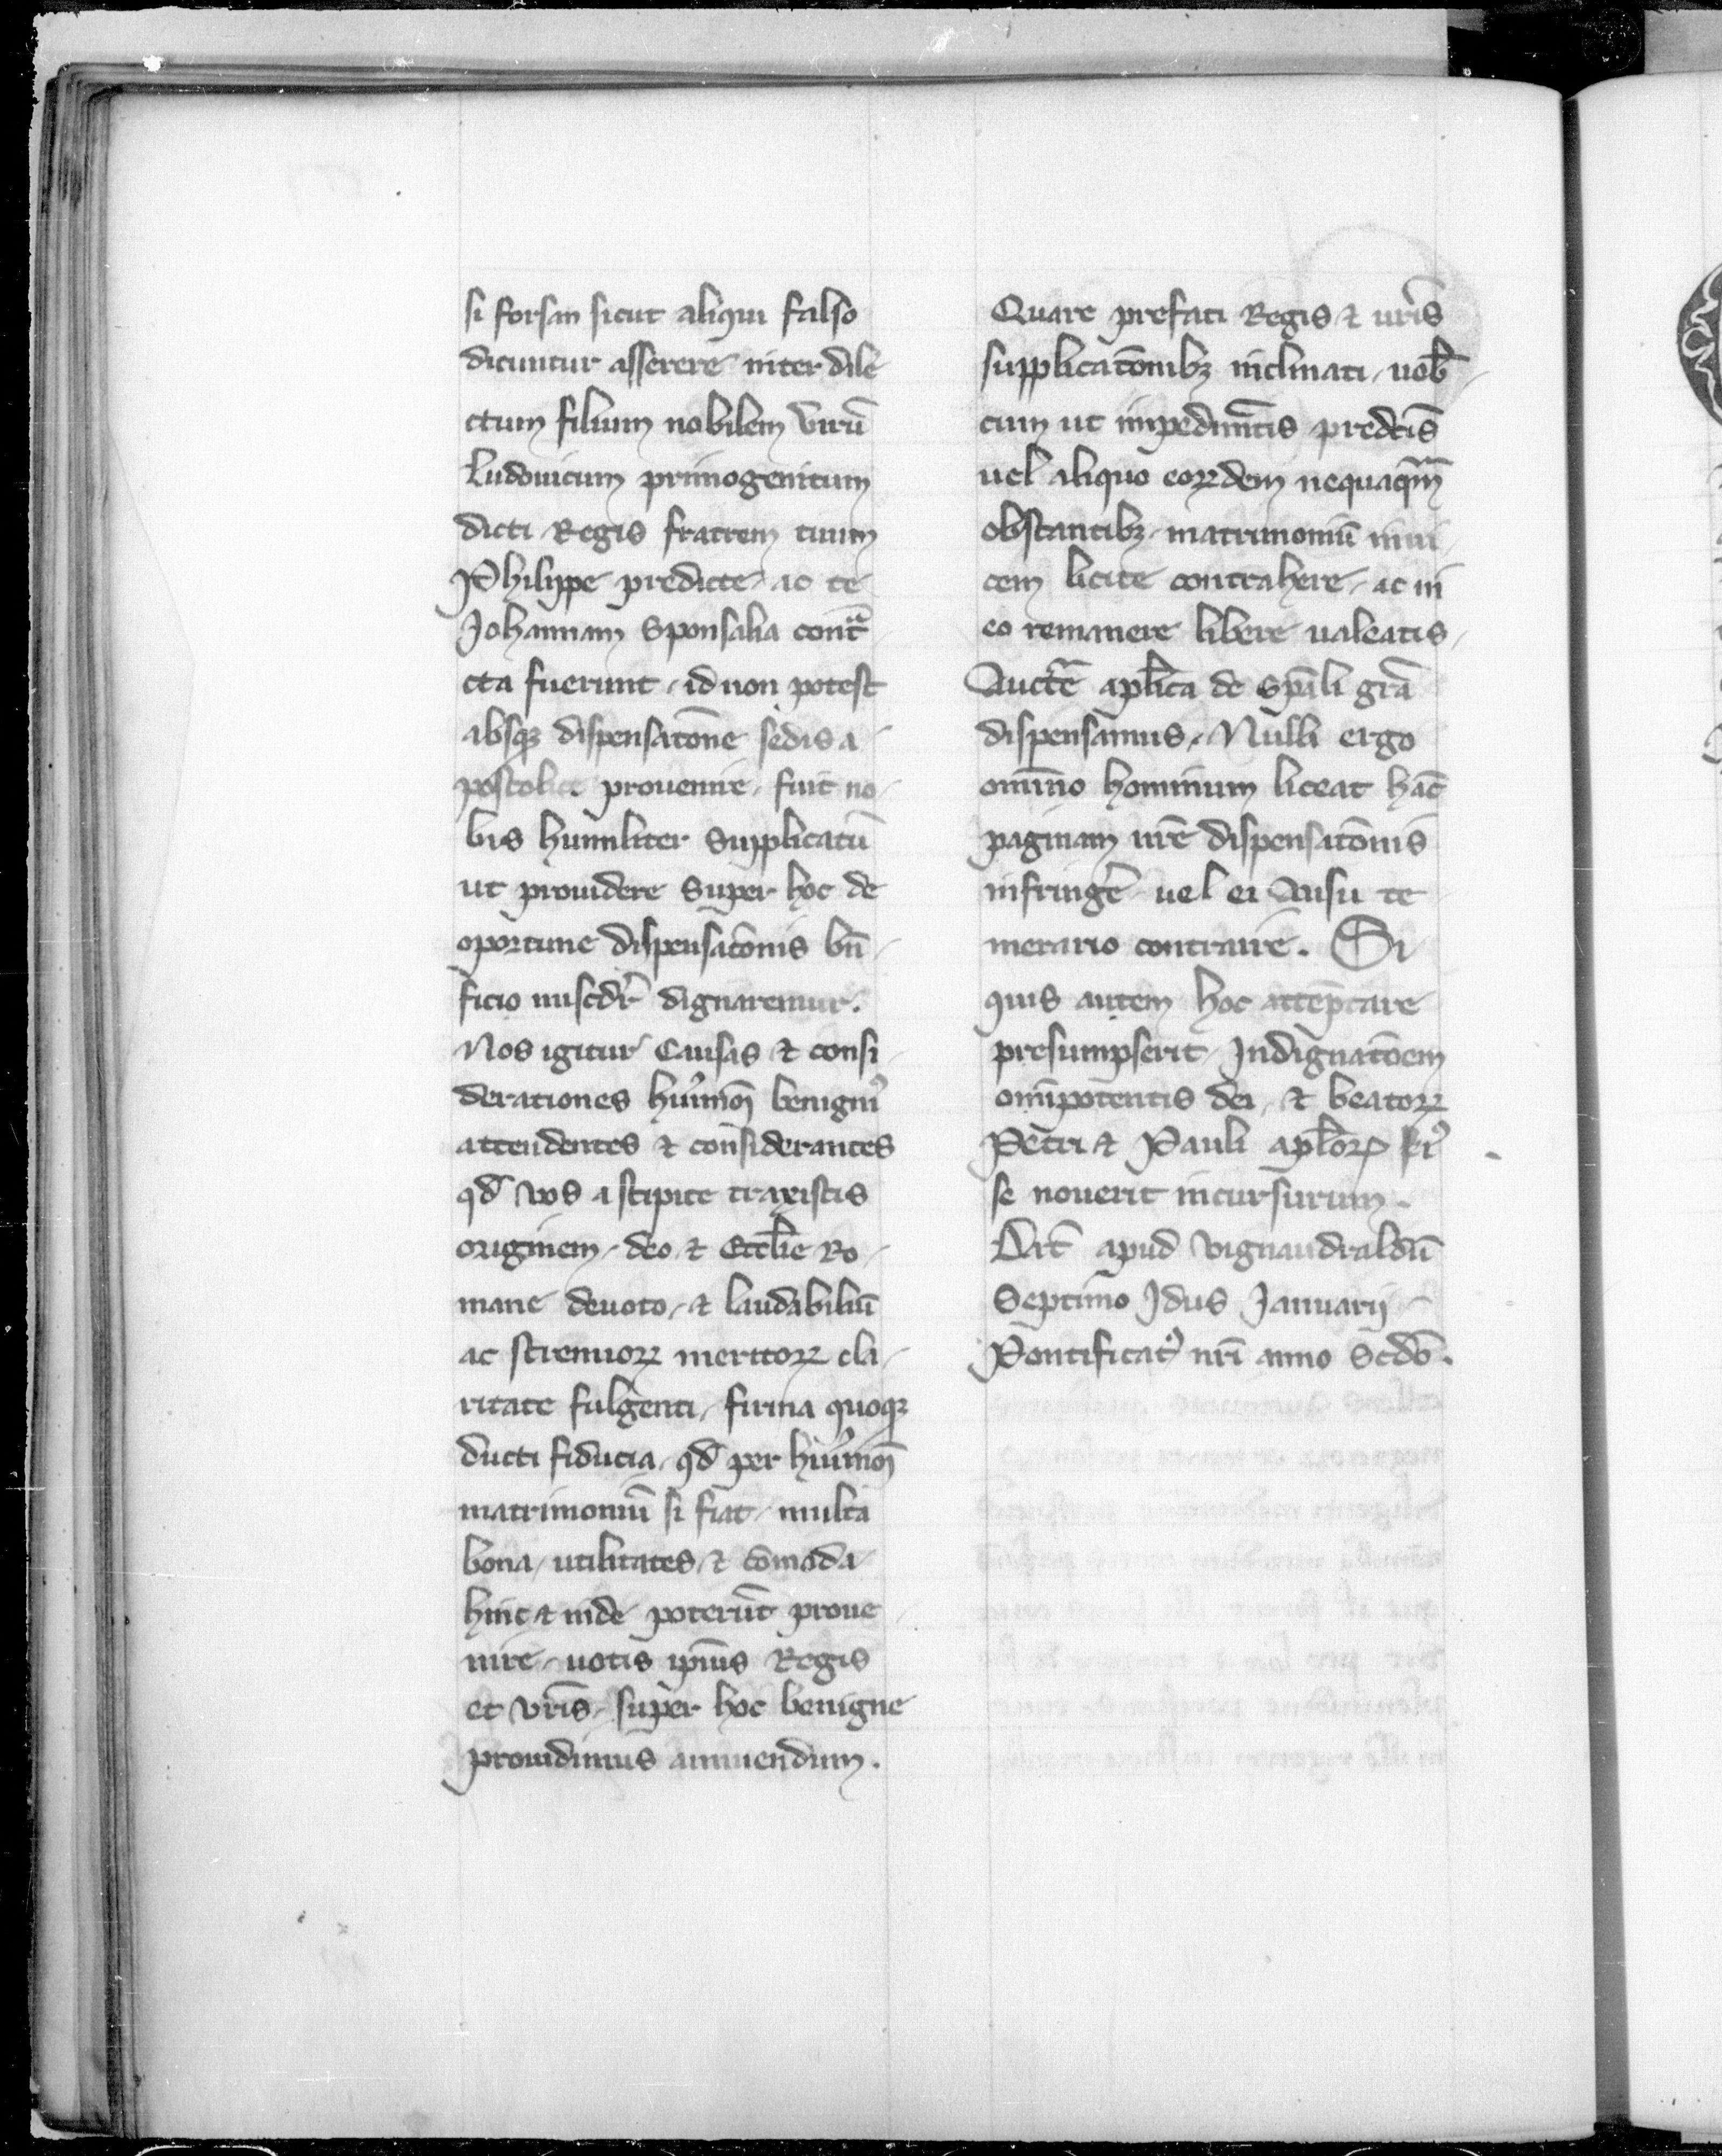 si forsan sicut aliqui falso
dicuntur asserere inter dile
ctum filium nobilem Virū
Ludouicum primogenitum
dicti Regis fratrem tuum
Philippe predicte ac te
Johannam Sponsalia contᵃ
cta fuerunt, id non potest
absqꝫ dispensatōne sedis a
postolice prouenire, fuit no
bis humiliter Supplicatū
ut prouidere Super hoc de
oportune dispensatōnis bn̄
ficio misc̄dr̄ dignaremur.
Nos igitur Causas ⁊ consi
derationes hui᷒mōi benigni᷒
attendentes ⁊ considerantes
qd̄ vos a stipite traxistis
originem, deo ⁊ Eccl̄ie Ro
mane deuoto, ⁊ laudabiliū
ac strenuoꝝ meritoꝝ cla
ritate fulgenti, firma quoqꝫ
ducti fiducia, qd̄ per hui᷒mōi
matrimoniū si fiat, multa
bona, utilitates, ⁊ cōmoda
hinc ⁊ inde poterūt proue
nire, uotis ipīus Regis
et vr̄is, super hoc benigne
prouidimus annuendum.
Quare prefati Regis ⁊ ur̄is
supplicatōnibꝫ inclinati, uob̄
cum ut impedimt̄is predc̄is
uel aliquo eoꝝdem nequaq̄m
obstantibꝫ, matrimoniū inui
cem licite contrahere, ac in
eo remanere libere ualeatis,
Auctc̄e apl̄ica de Sp̄ali gr̄a
dispensamus, Nulli ergo
omīno hominum liceat hāc
paginam nr̄e dispensatōnis
infringe᷒ uel ei Ausu te
merario contraire. Si
quis autem hoc attēptare
presumpserit, Indignatōem
omīpotentis dei, ⁊ beatoꝝ
Petri ⁊ Pauli apl̄oꝝ ei᷒
se nouerit incursurum.
Dat̄ apud Vignandraldū
Septimo Idus Januarij
Pontificat᷒ nr̄i anno Scdō.